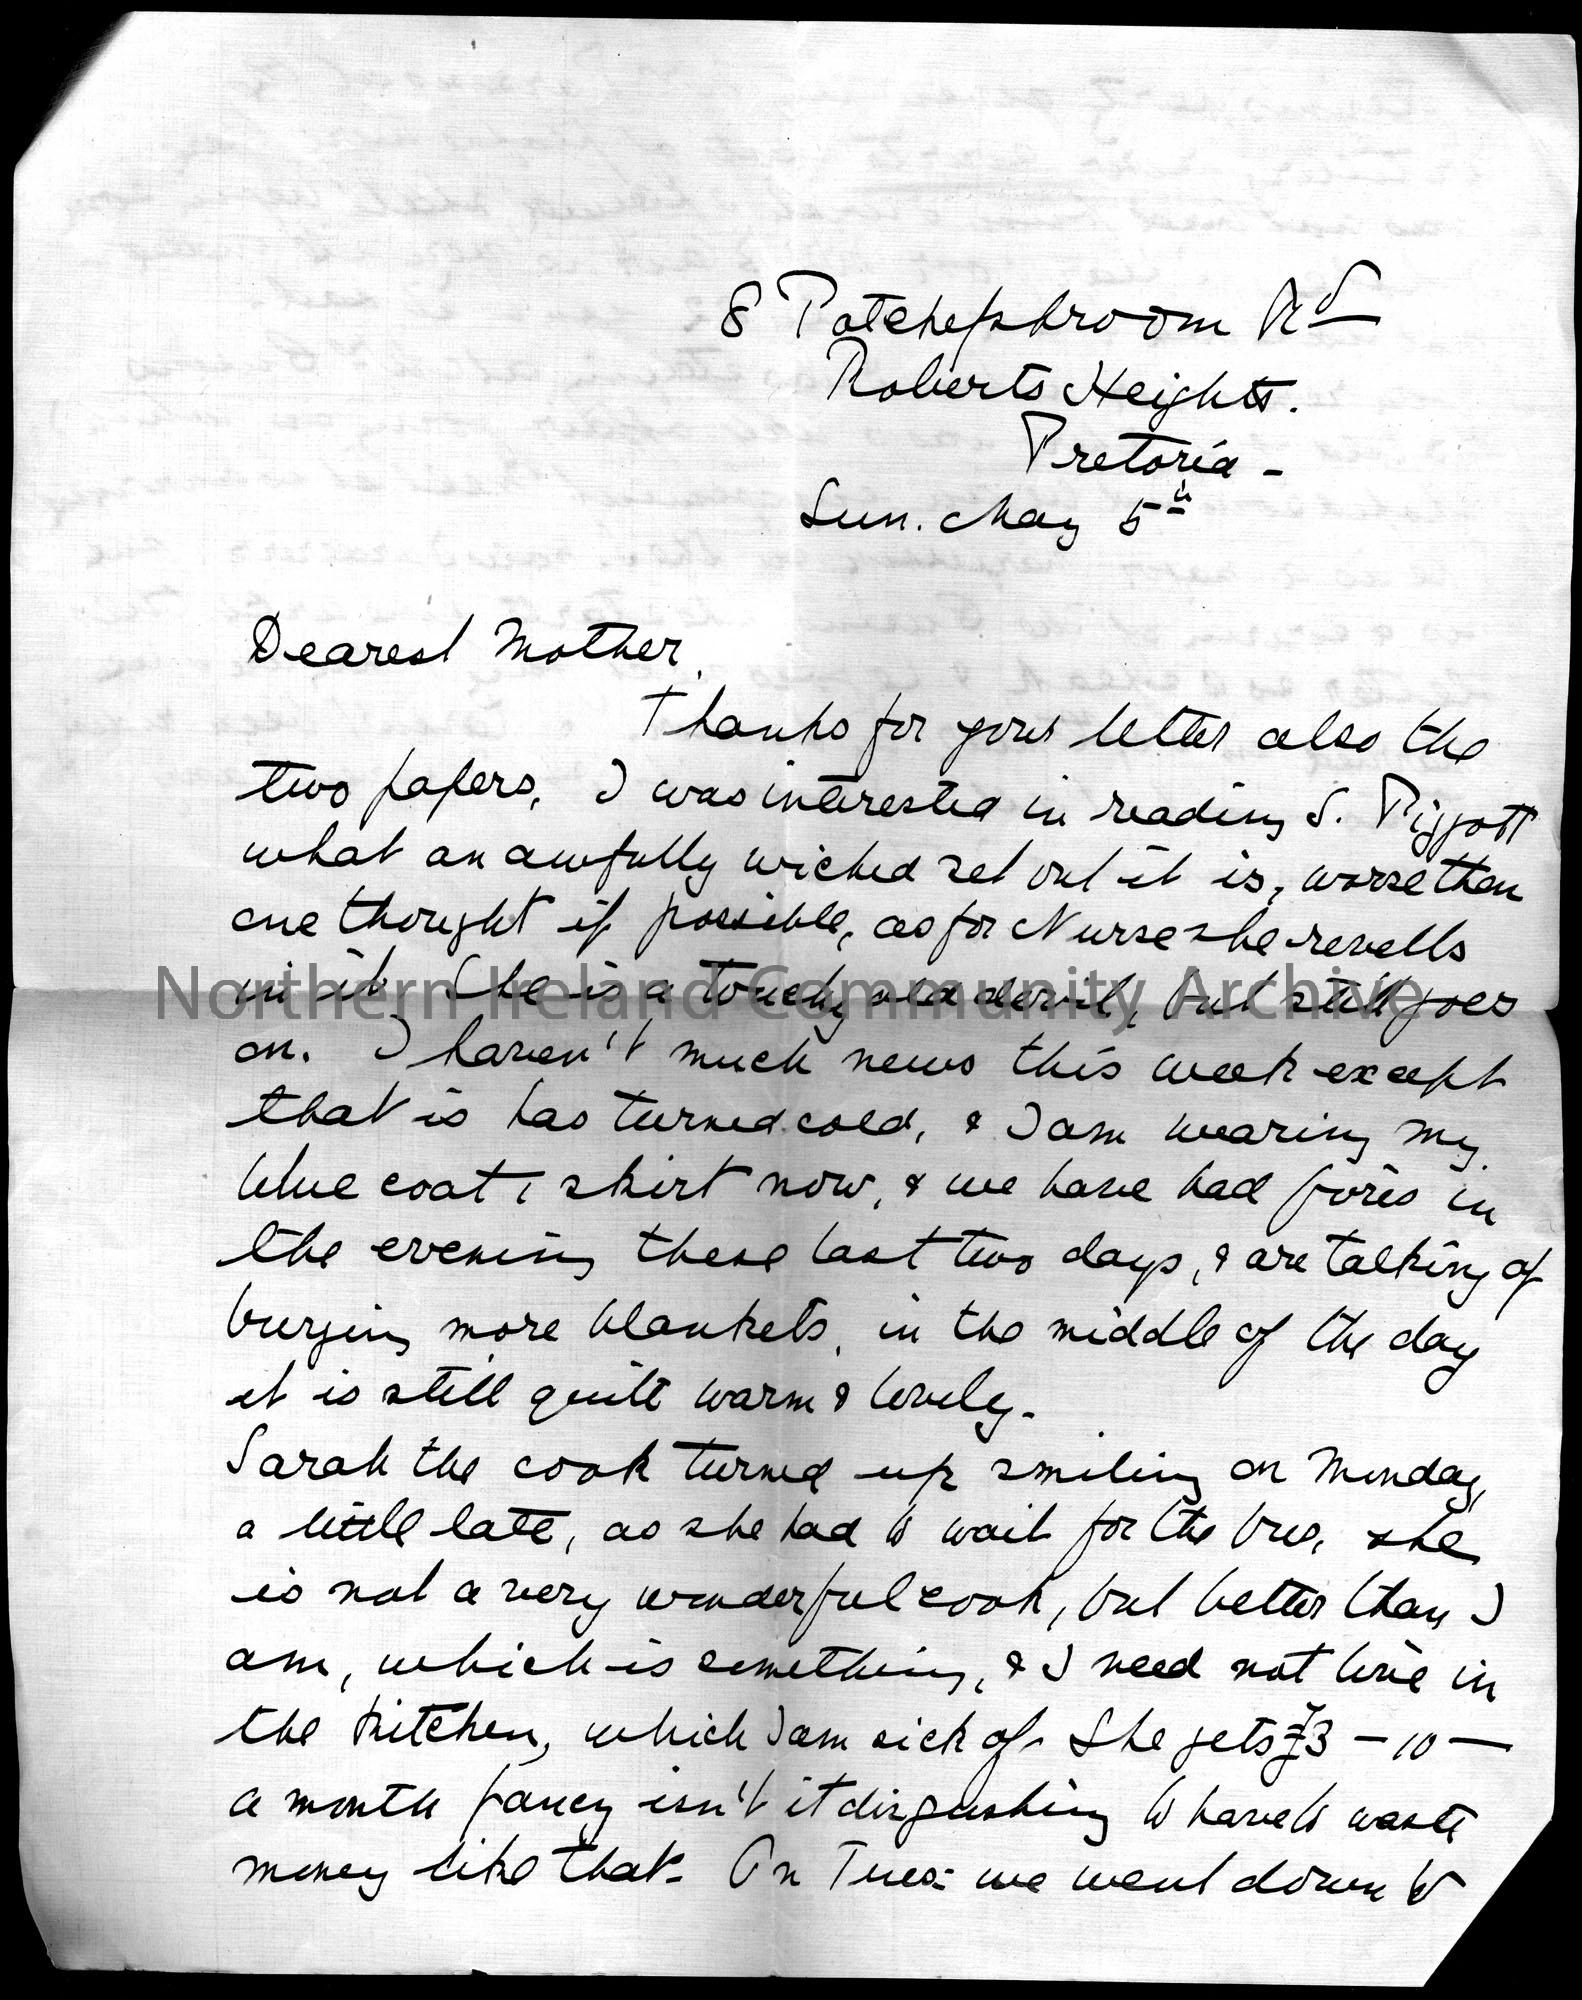 8 Potchefshroom Rd
Roberts Heights.
Pretoria -
Sun. May 5th
Dearest Mother,
Thanks for your letter also the
two papers, I was interested in reading S. Piggott
what an awfully wicked set out it is, worse than
one thought if possible, as for Nurse she revells
in it. She is a touchy old devil, but still goes
Northern Ireland Community Archive
on. I haven't much news this week except
that is has turned cold, & I am wearing my
blue coat & skirt now, & we have had fires in
the evening these last two days, & are talking of
buying more blankets, in the middle of the day
it is still quite warm & lovely.
Sarah the cook turned up smiling on Monday,
a little late, as she had to wait for the bus, she
is not a very wonderful cook, but better than I
am, which is something, & I need not live in
the kitchen, which I am sick of. She gets £3 - 10 -
a month fancy isn't it disgusting to have to waste
money like that. On Tues: we went down to